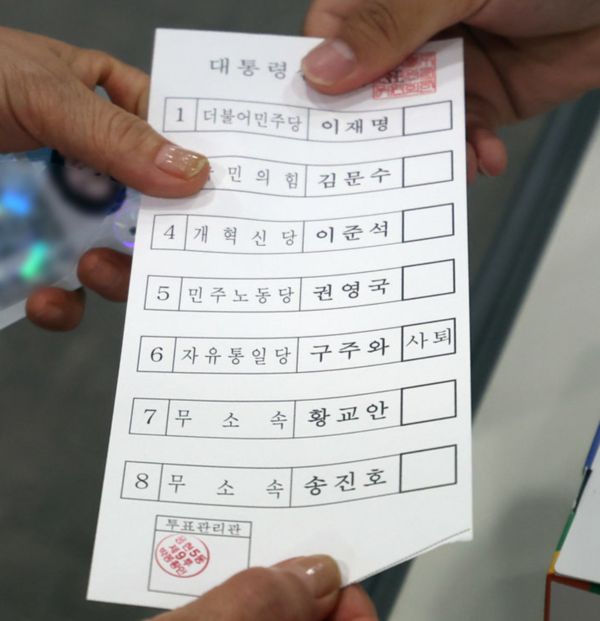 대통령
1 더불어민주당 이재명
민의힘 김문수
4 개혁신당 이준석
5 민주노동당 권영국
6 자유통일당 구주와 사퇴
7 무소속 황교안
8 무소속 송진호
투표관리관